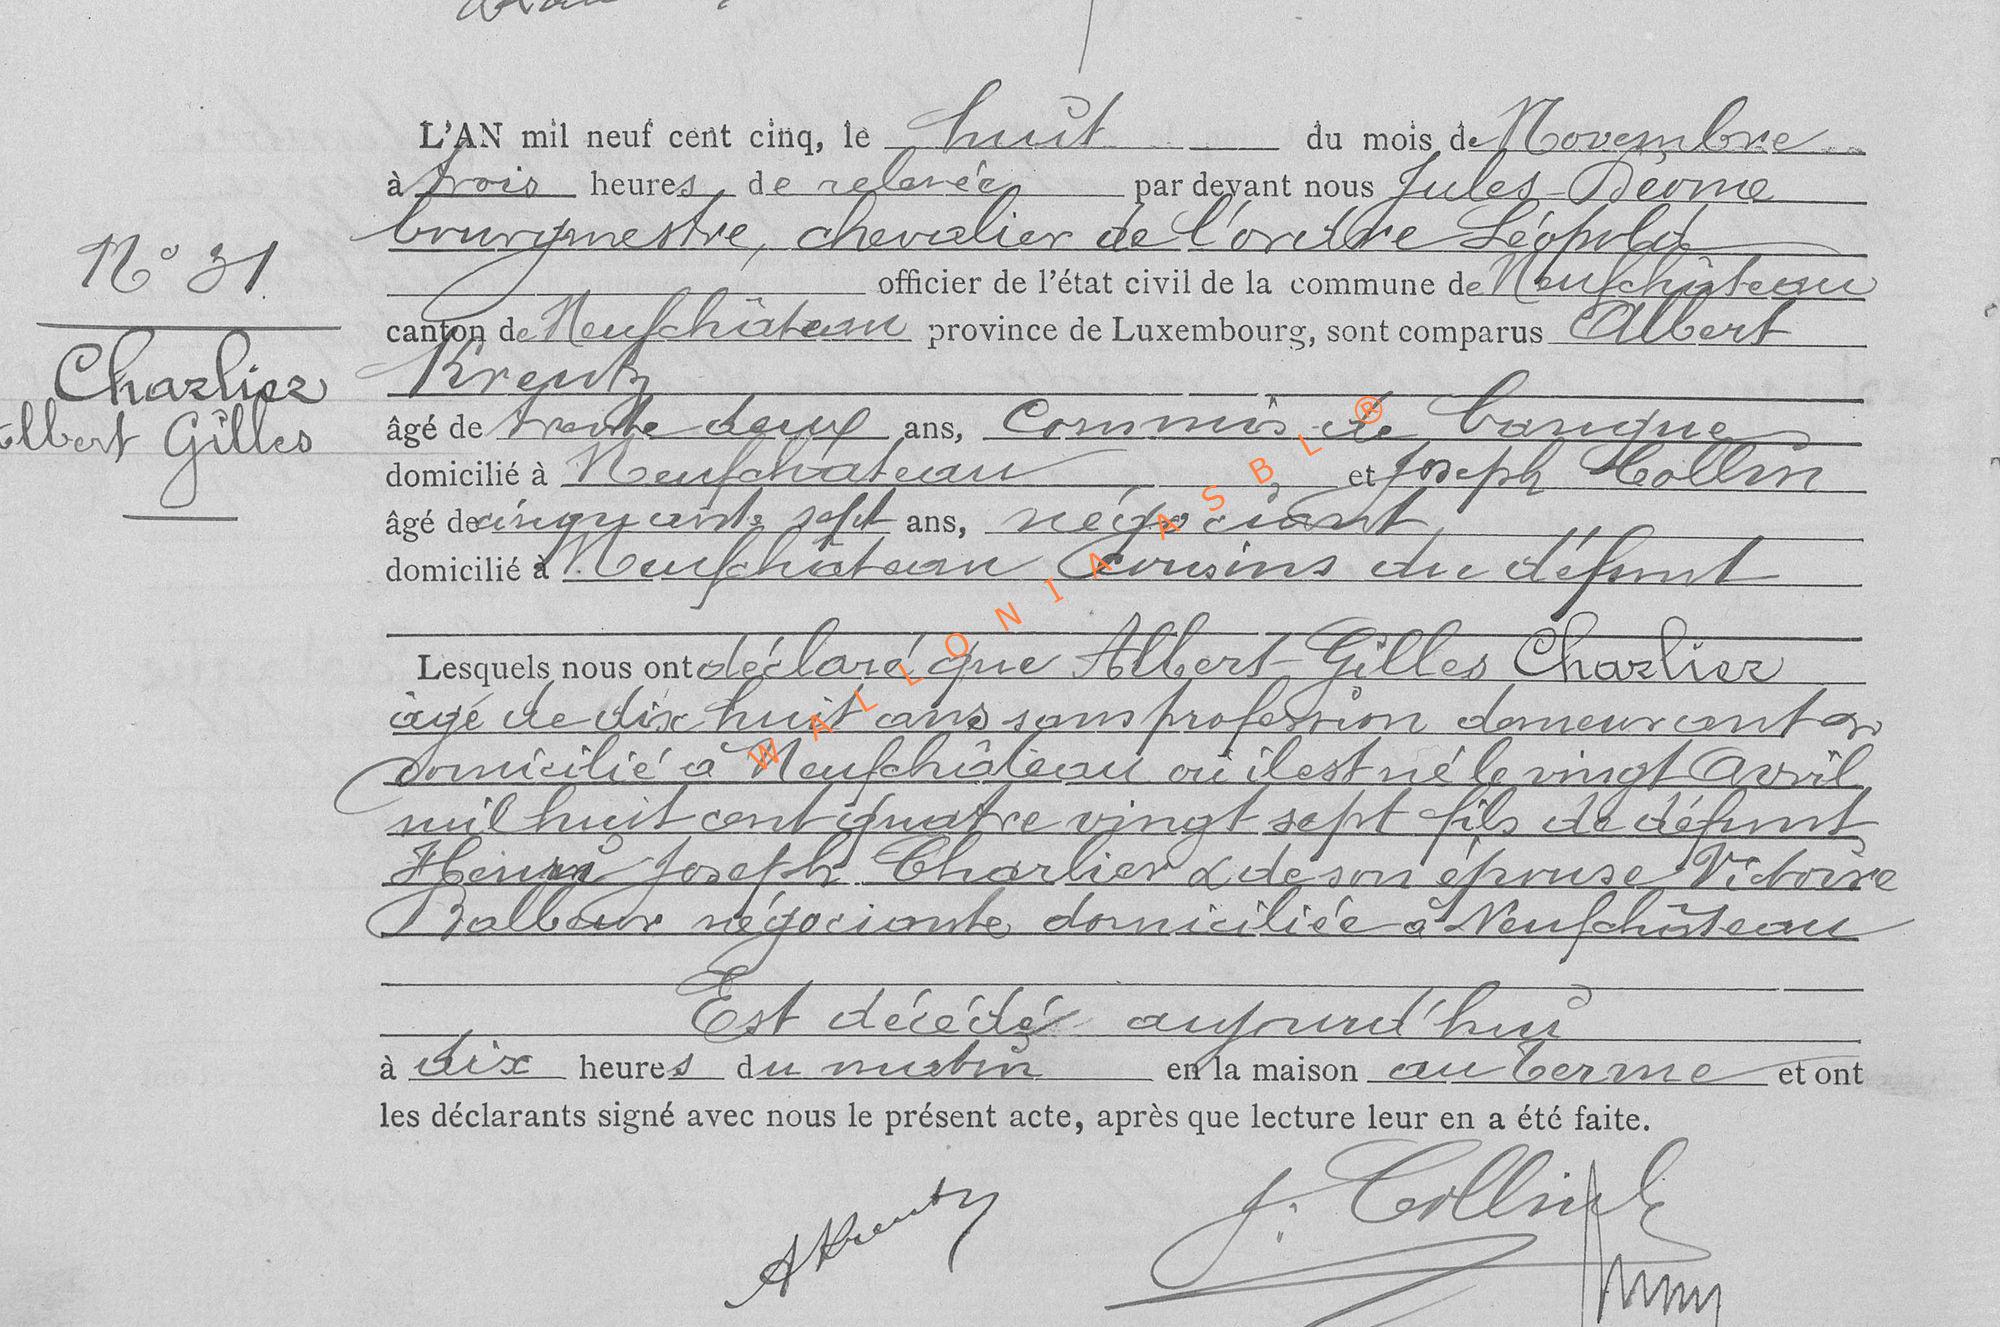 N° 31
Charlier
Albert Gilles
L'AN mil neuf cent cinq, le huit du mois de Novembre
à trois heures de relevée par devant nous Jules Deome
bourgmestre, chevalier de l'ordre Léopold
officier de l'état civil de la commune de Neufchâteau
canton de Neufchâteau province de Luxembourg, sont comparus Albert
Kreutz
âgé de trente deux ans, commis de banque
domicilié à Neufchâteau et Joseph Collin
âgé de cinquante sept ans, négociant
domicilié à Neufchâteau Cousins du défunt
Lesquels nous ont déclaré que Albert Gilles Charlier
âgé de dix huit ans sans profession demeurant &
domicilié à Neufchâteau où il est né le vingt Avril
mil huit cent quatre vingt sept fils de défunt
Henri Joseph Charlier & de son épouse Victoire
Balbeur négociante domiciliée à Neufchâteau
Est décédé aujourd'hui
à dix heures du matin en la maison au terme et ont
les déclarants signé avec nous le présent acte, après que lecture leur en a été faite.
AKreutz
J. Collin
WALLONIA ASBL ®